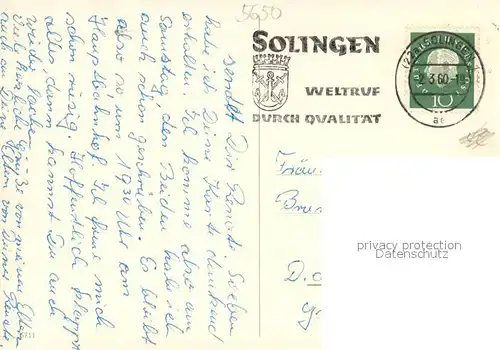 5650
SOLINGEN
WELTRUF
DURCH QUALITÄT
(22a) SOLINGEN
2.3.60-1
ae
10
Fräu
D
privacy protection
Datenschutz
sendet Dir Renate. Soeben
habe ich Deine Karte dankend
erhalten. Ich komme also am
Samstag, den Beiden habe ich
auch schon geschrieben. Es bleibt
also so um 19³⁰ Uhr am
Hauptbahnhof. Ich freue mich
schon riesig. Hoffentlich klappt
alles, dann kannst Du auch
wieder lachen.
Viele herzliche Grüße von meinen Eltern
auch an Deine Eltern von Deiner Renate.